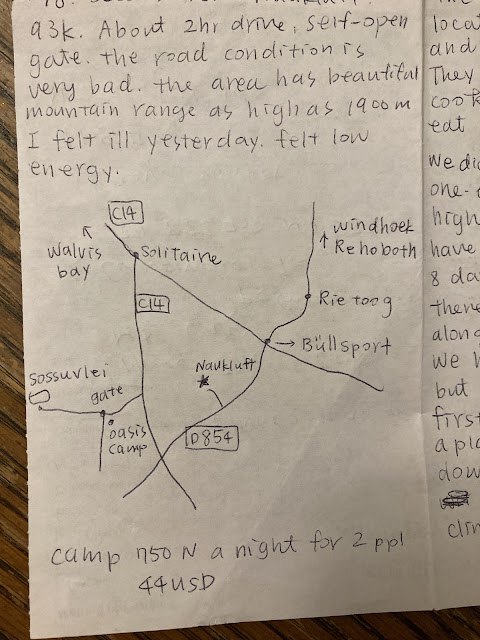 93k. About 2hr drive, self-open
gate. the road condition is
very bad. the area has beautiful
mountain range as high as 1900m
I felt ill yesterday. felt low
energy.
C14
Walvis
bay
Solitaine
Windhoek
Rehoboth
C14
Rie toog
Büllsport
Naukluft
Sossuvlei
gate
oasis
camp
D854
camp 750 N a night for 2 ppl
44USD
and
They
cook
eat
one-
high
have
8 da
there
along
we
but
first
a pla
down